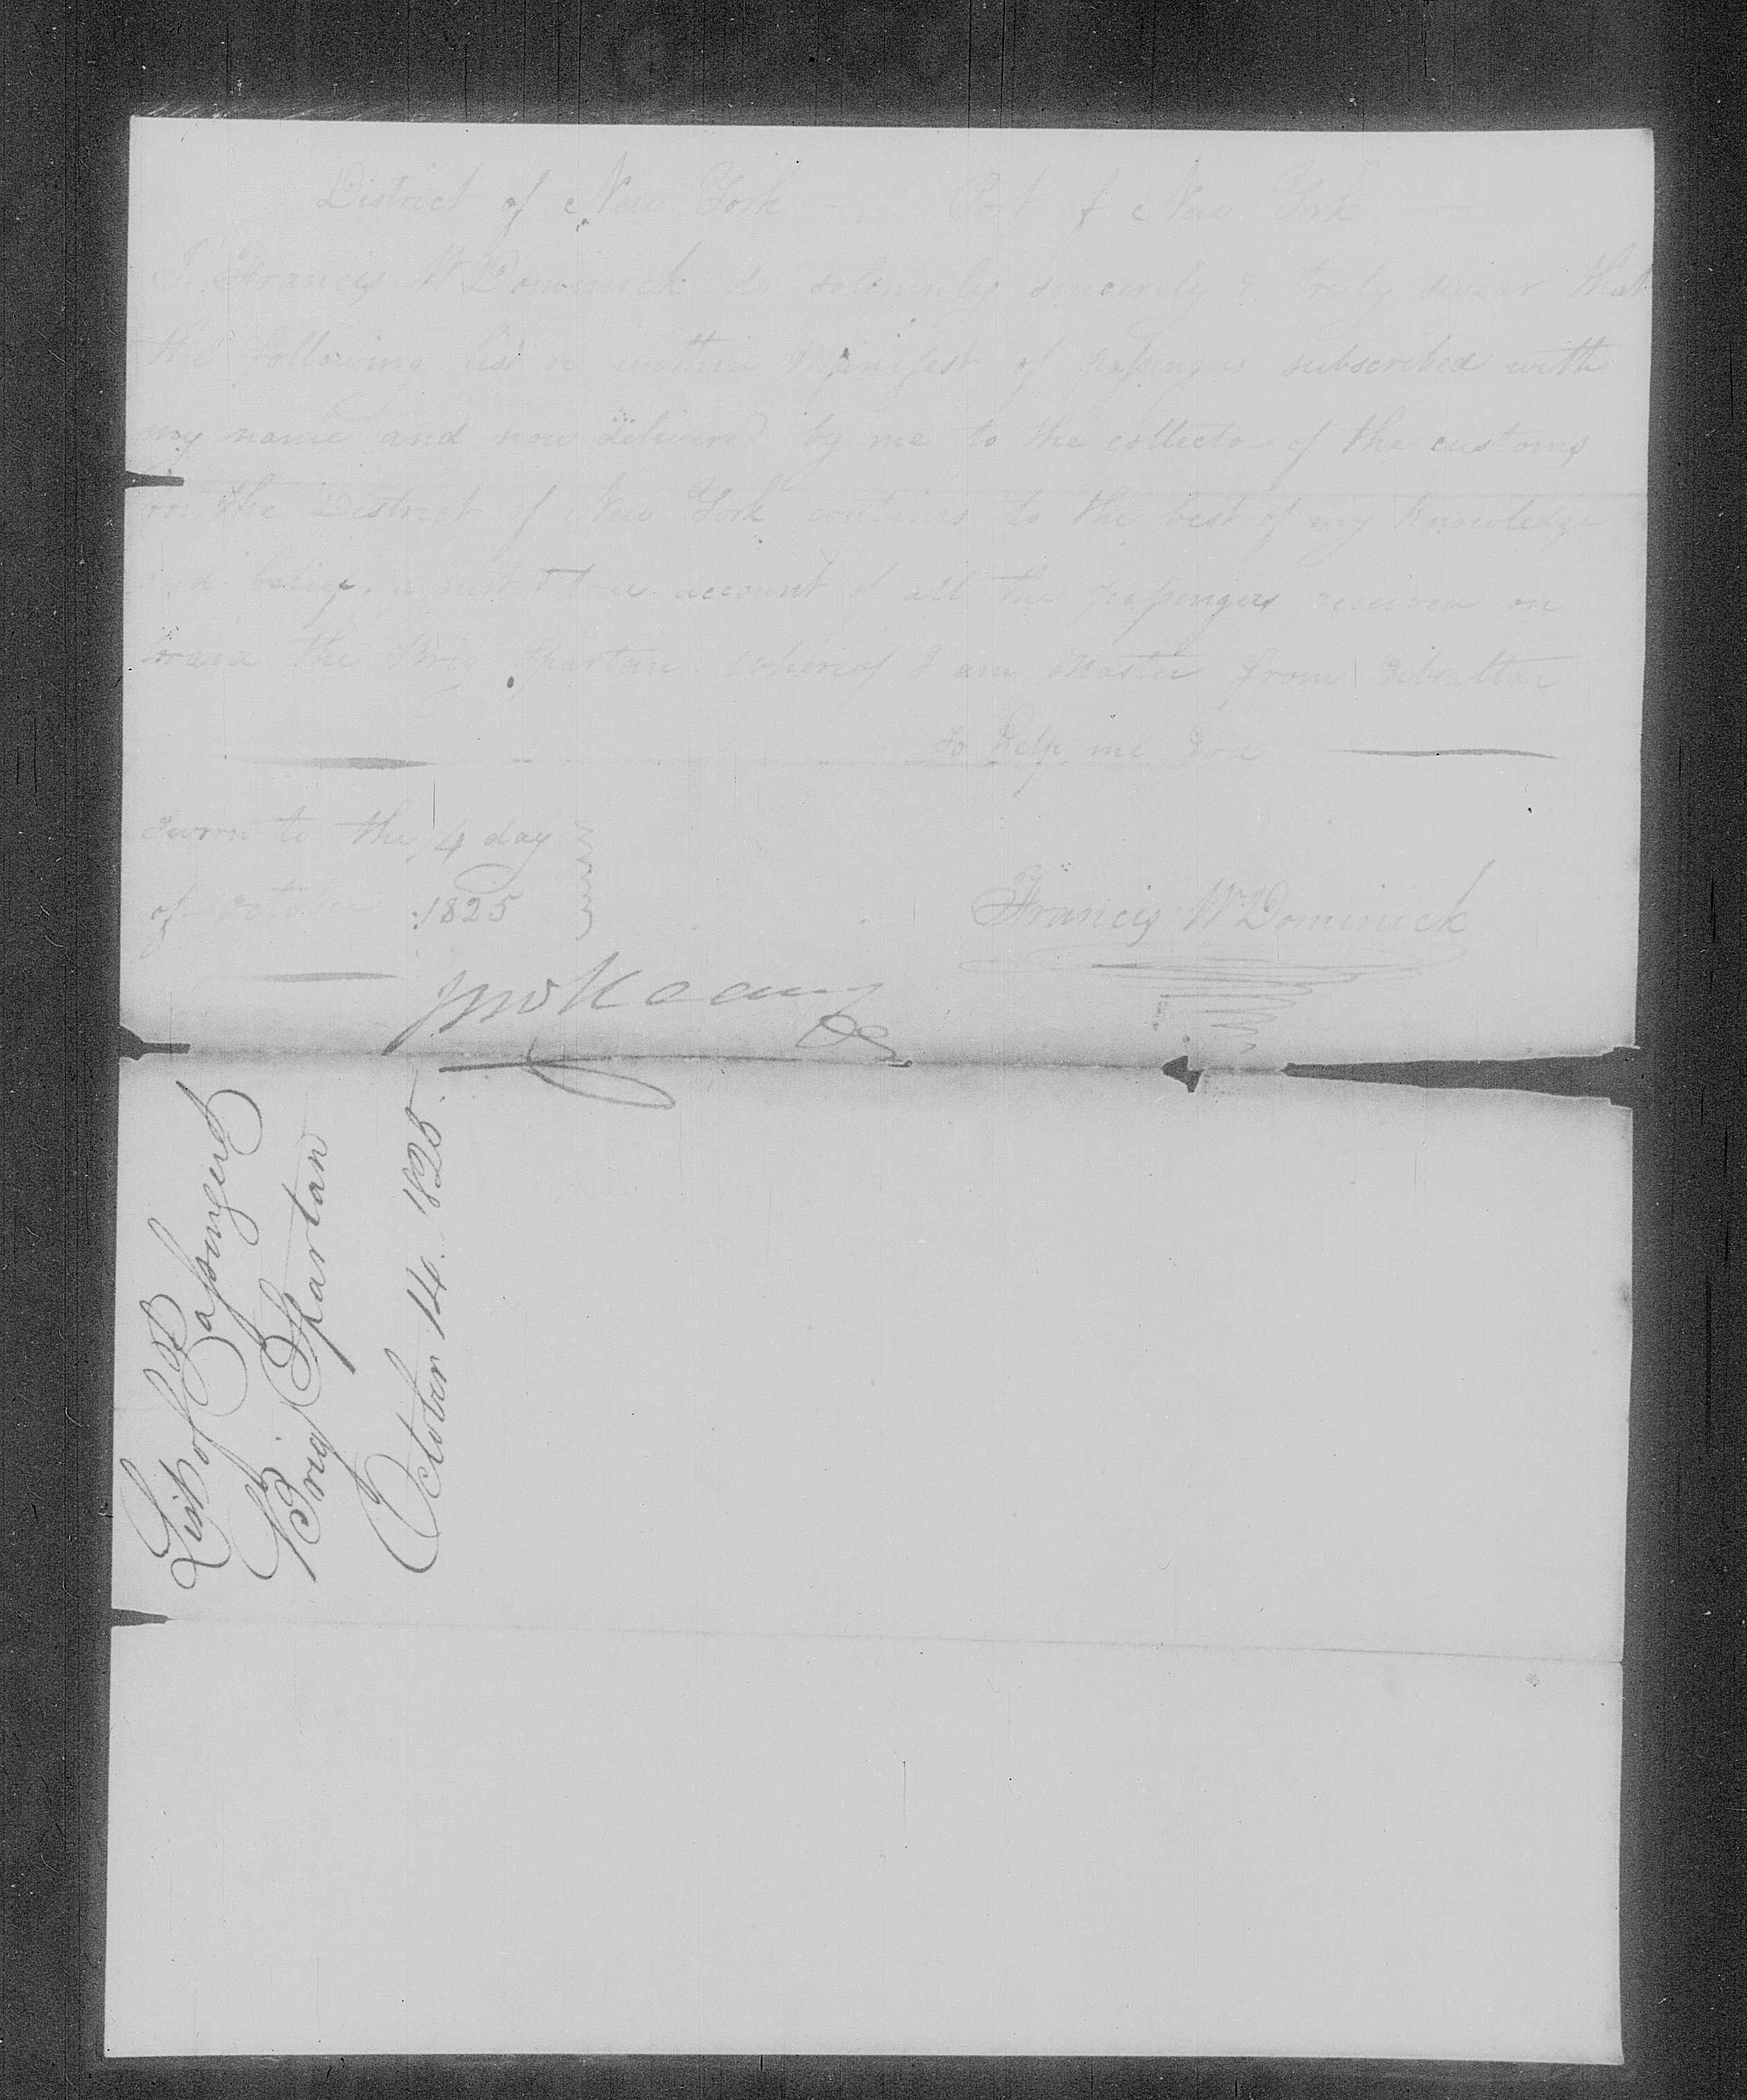 District of New York — Port of New York
I. Francis W Dominick do solemnly sincerely & truly swear that
the following list or within Manifest of passengers subscribed with
my name and now delivered by me to the collector of the customs
in the District of New York contains to the best of my knowledge
and belief. a just & true account of all the passengers received on
board the Brig Spartan. whereof I am Master from Gibraltar
So help me God
Sworn to the 4 day
of October 1825
Francis W Dominick
List of Passengers
Brig Spartan
October 14. 1825.